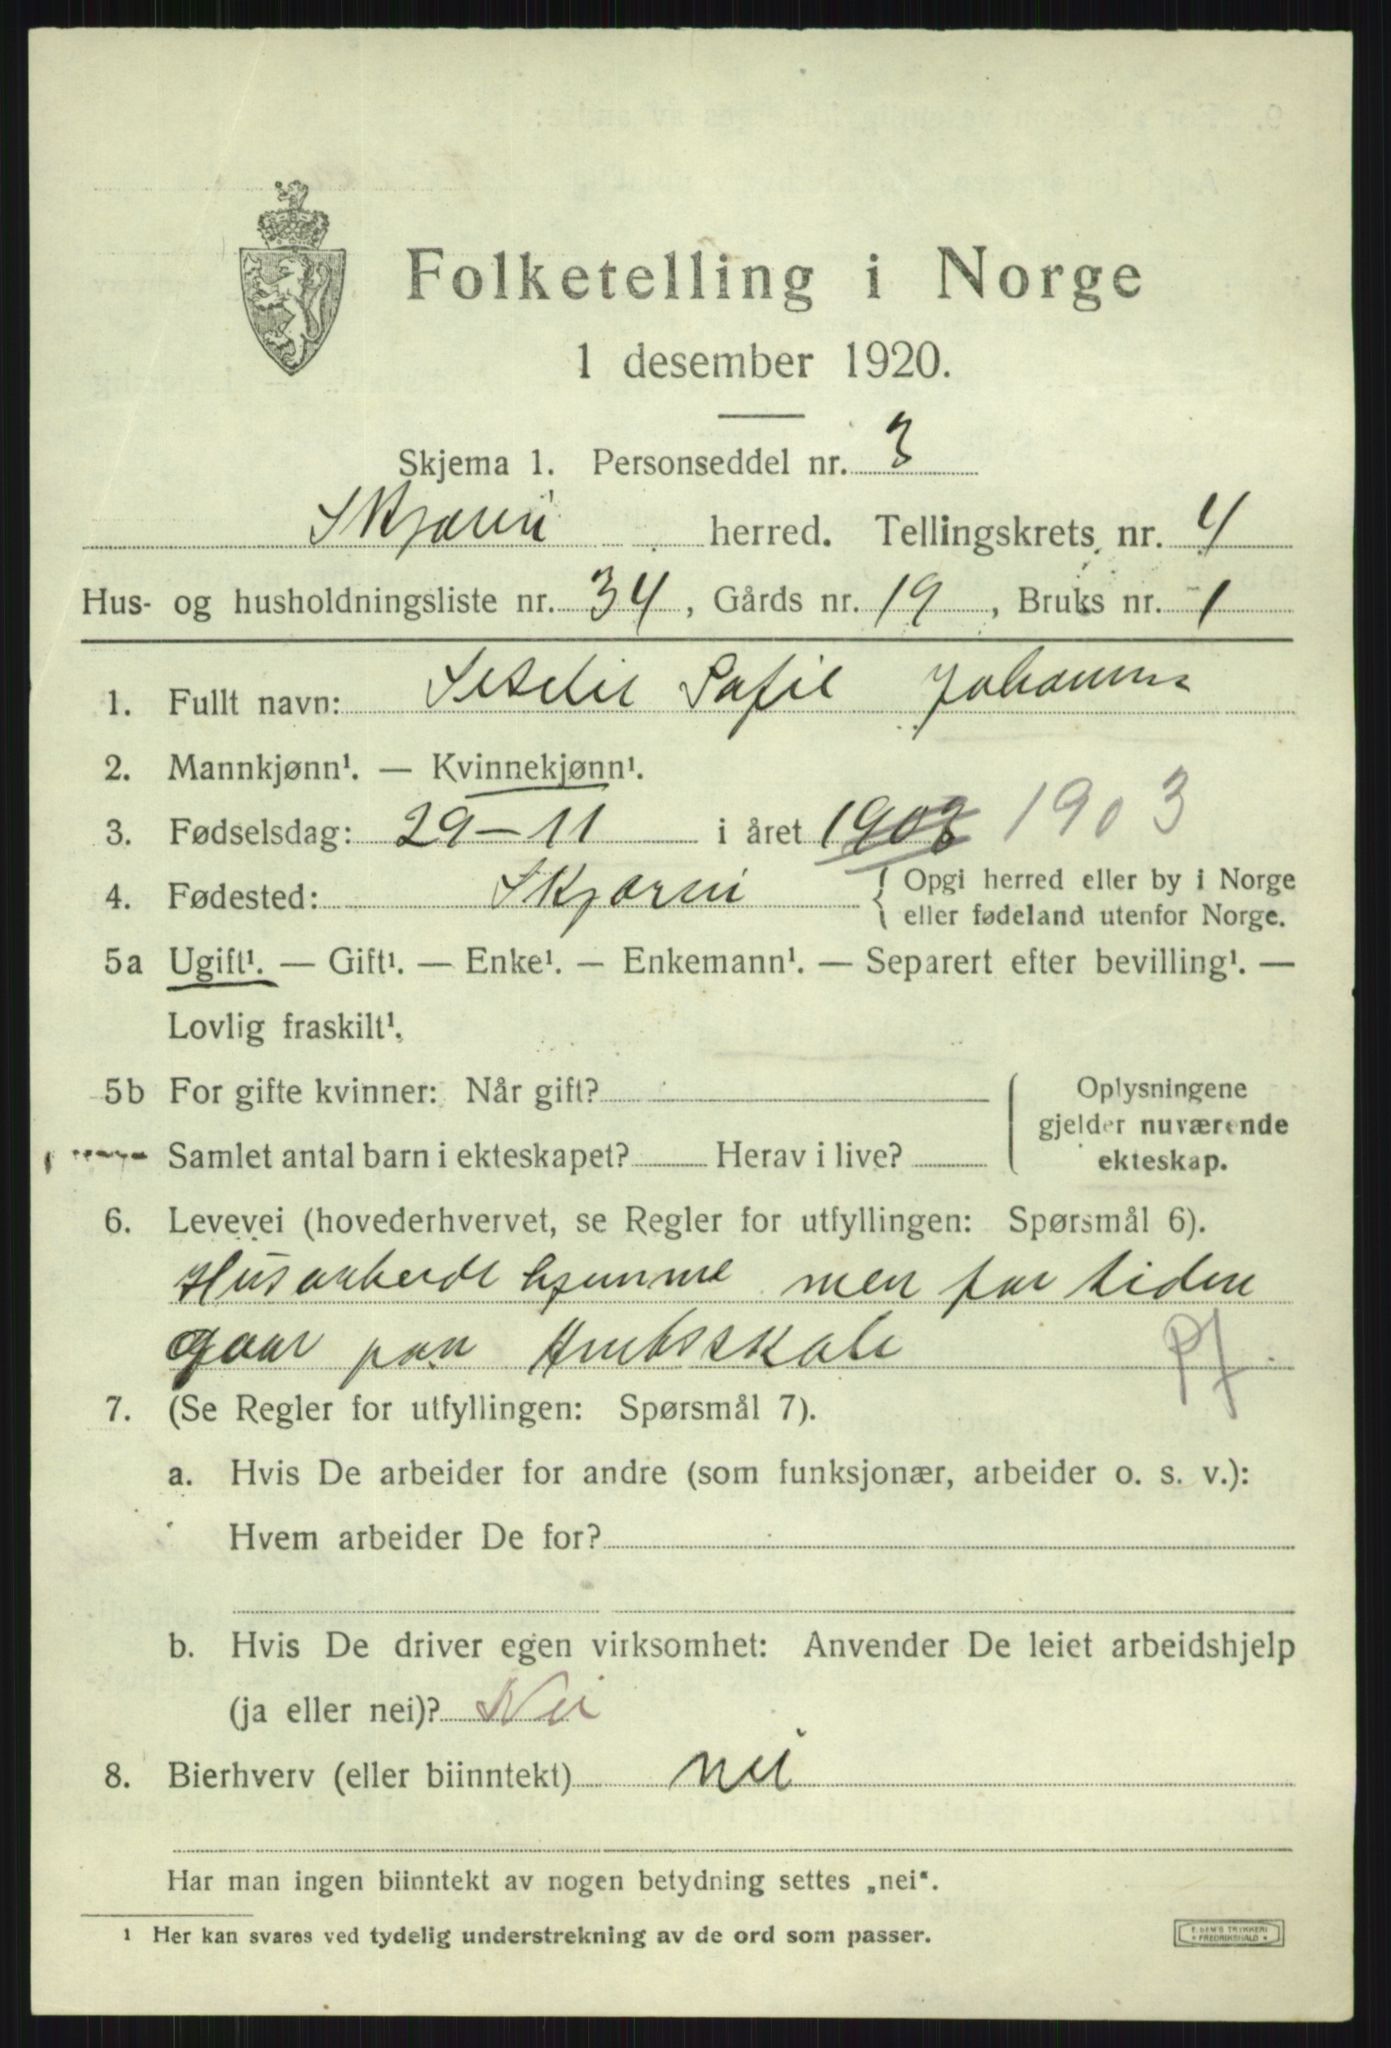 Folketelling i Norge
1 desember 1920.
Skjema 1. Personseddel nr. 3
Skjervi herred. Tellingskrets nr. 4
Hus- og husholdningsliste nr. 34, Gårds nr. 19, Bruks nr. 1
1. Fullt navn: Sofie
2. Mannkjønn¹. — Kvinnekjønn¹.
3. Fødselsdag: 29-11 i året 1903
4. Fødested: Skjervi { Opgi herred eller by i Norge
eller fødeland utenfor Norge.
5a Ugift¹. — Gift¹. — Enke¹. — Enkemann¹. — Separert efter bevilling¹. —
Lovlig fraskilt¹.
5b For gifte kvinner: Når gift? Oplysningene
gjelder nuværende
Samlet antal barn i ekteskapet? Herav i live? ekteskap.
6. Levevei (hovederhvervet, se Regler for utfyllingen: Spørsmål 6).
Husarbeide hjemme men for tiden
gaar paa skole Pf
7. (Se Regler for utfyllingen: Spørsmål 7).
a. Hvis De arbeider for andre (som funksjonær, arbeider o. s. v.):
Hvem arbeider De for?
b. Hvis De driver egen virksomhet: Anvender De leiet arbeidshjelp
(ja eller nei)? Nei
8. Bierhverv (eller biinntekt) nei
Har man ingen biinntekt av nogen betydning settes „nei“.
¹ Her kan svares ved tydelig understrekning av de ord som passer.
E. SEM'S TRYKKERI
FREDRIKSHALD